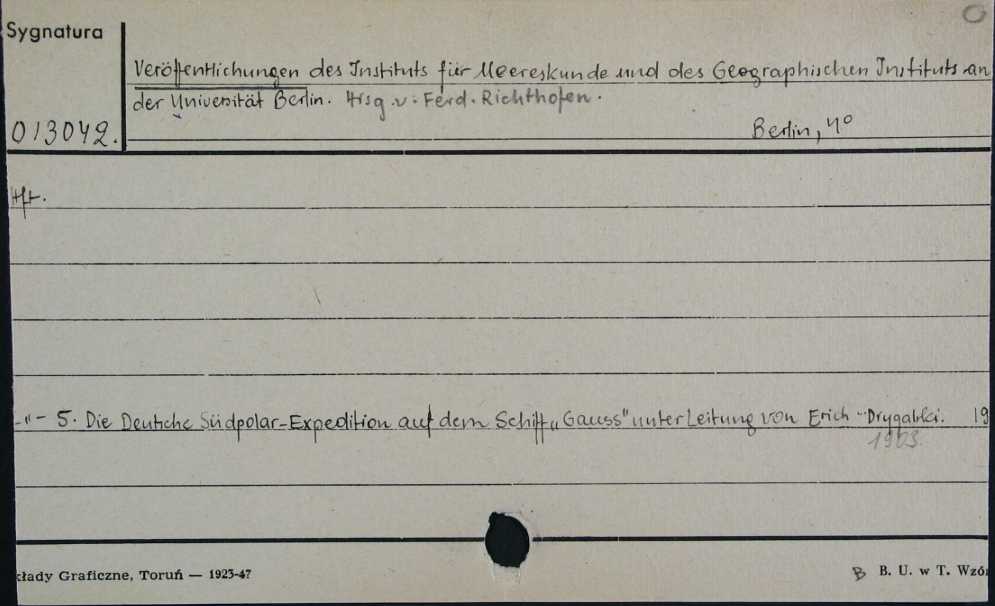 Sygnatura
Veröffentlichungen des Instituts für Meereskunde und des Geographischen Instituts an
der Universität Berlin. Hrsg. v. Ferd. Richthofen.
013042.
Berlin, 4°
Hft.
-"- 5. Die Deutsche Südpolar-Expedition auf dem Schiff „Gauss" unter Leitung von Erich Drygalski. 19
1903.
kłady Graficzne, Toruń — 1923-47
B B. U. w T. Wzó